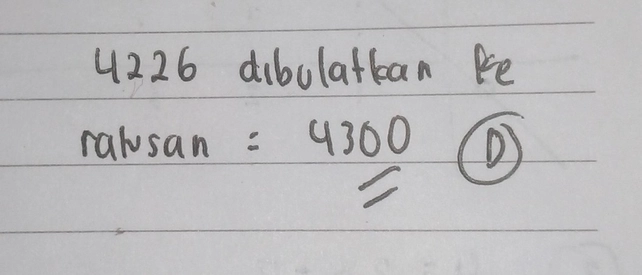 4226 dibulatkan ke
ratusan = 4300 D